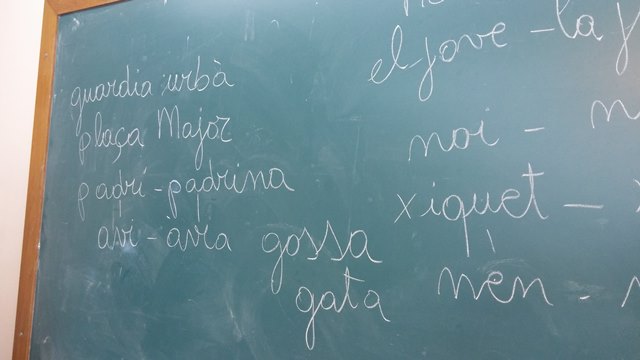 guardia urbà
plaça Major
padrí - padrina
avi - àvia
gossa
gata
el jove - la
noi -
xiquet -
nen -